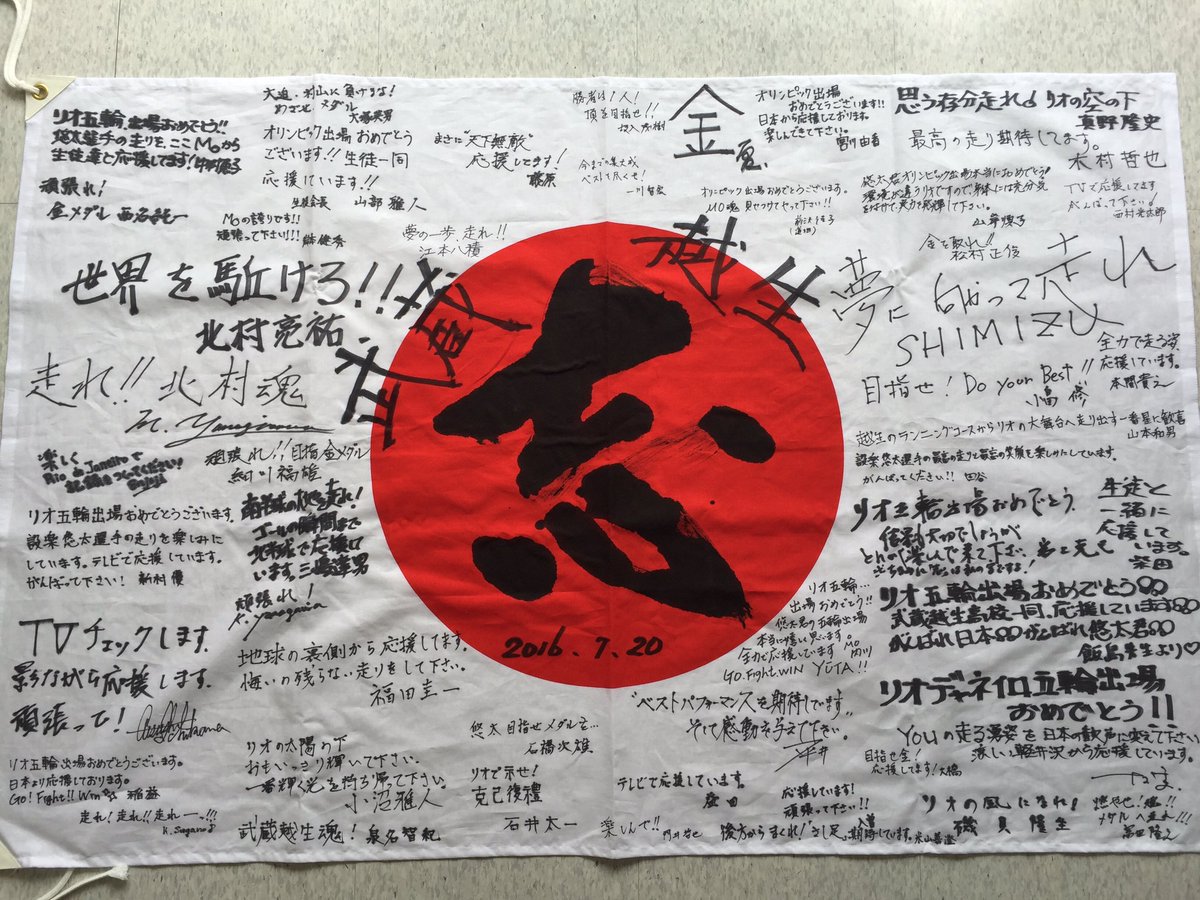 リオ五輪出場おめでとう!!
悠太選手の走りを、ここMoから
生徒達と応援してます!
頑張れ!
金メダル
大迫、村山に負けるな!
めざせ メダル
オリンピック出場おめでとう
ございます!! 生徒一同
応援しています!!
生徒会長 山部雅人
Moの誇りです!!
頑張って下さい!!!
まさに"天下無敵"
応援してます!
藤原
夢の一歩、走れ!!
江本八積
勝者は1人!
頂を目指せ!!
今までの集大成
ベスト尽くせ!
金
オリンピック出場
おめでとうございます!!
日本から応援しております。
楽しんできて下さい。
宮川由香
オリンピック出場おめでとうございます。
MO魂 見せつけてやって下さい!!
思う存分走れ リオの空の下
真野隆史
最高の走り期待してます。
木村哲也
悠太君オリンピック出場本当におめでとう!
TVで応援してます
がんばって下さい!
金を取れ!!
松村正俊
世界を駈けろ!!
北村亮祐
走れ!! 北村魂
武蔵 越生
志
2016.7.20
夢に向かって走れ
SHIMIZU
目指せ! Do your Best!!
小畠 修
全力で走る姿
応援しています。
本間貴之
越生のランニングコースからリオの大舞台へ走り出す一番星に歓喜
山本和男
設楽悠太選手の最高の走りと最高の笑顔を楽しみにしています。
がんばってください!! 田谷
楽しく
Rio de Janeiroで
頑張れ!! 目指金メダル
細川福雄
リオ五輪出場おめでとうございます。
設楽悠太選手の走りを楽しみに
しています。テレビで応援しています。
がんばって下さい! 新村優
エールの瞬間まで
頑張れ!
K. Yanagida
リオ五輪出場おめでとう
生徒と
一緒に
応援して
います。
柴田
リオ五輪出場おめでとう
武蔵越生高校一同、応援しています
がんばれ日本 がんばれ悠太君
飯島先生より♡
リオ五輪…
出場おめでとう!!
悠太君のリオ五輪出場
本当に嬉しく思います。
全力で応援しています MO
Go. Fight. WIN YUTA!!
TVチェックします。
影ながら応援します。
頑張って!
地球の裏側から応援してます。
悔いの残らない走りをして下さい。
福田圭一
"ベストパフォーマンスを期待しています"
そして感動を与えて下さい。
平井
リオデジャネイロ五輪出場
おめでとう!!
Youの走る勇姿を日本の歓声に変えて下さい
涼しい軽井沢から応援しています。
目指せ金!
応援してます! 大橋
リオ五輪出場おめでとうございます。
日本より応援しております。
Go! Fight!! Win
走れ!走れ!!走れー!!!
K. Sugano
リオの太陽の下
おもいっきり輝いて下さい。
一番輝く光を持ち帰って下さい。
小沼雅人
武蔵越生魂! 泉名智紀
悠太目指せメダルを…
石橋次雄
リオで示せ!
克己復禮
石井太一
テレビで応援しています。
楽しんで!!
応援しています!
頑張って下さい!!
後方からまくれ! さし足、期待しています。
リオの風になれ!
磯貝隆生
燃やせ!魂!!
メダルへ走れ!!!